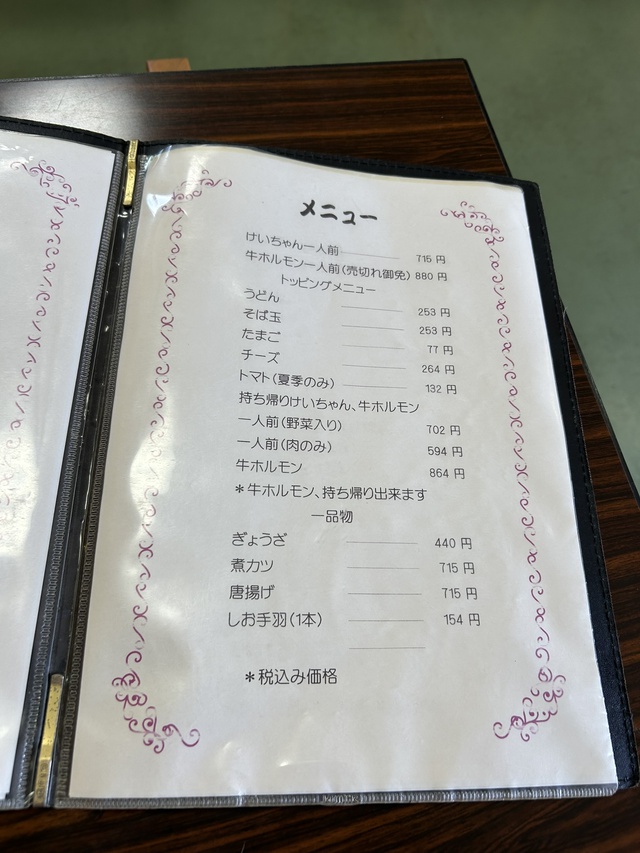 メニュー
けいちゃん一人前 715 円
牛ホルモン一人前(売切れ御免) 880 円
トッピングメニュー
うどん 253 円
そば玉 253 円
たまご 77 円
チーズ 264 円
トマト(夏季のみ) 132 円
持ち帰りけいちゃん、牛ホルモン
一人前(野菜入り) 702 円
一人前(肉のみ) 594 円
牛ホルモン 864 円
*牛ホルモン、持ち帰り出来ます
一品物
ぎょうざ 440 円
煮カツ 715 円
唐揚げ 715 円
しお手羽(1本) 154 円
*税込み価格